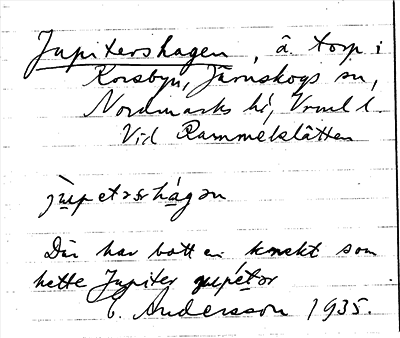 Jupitershagen, â torp i
Korsbyn, Järnskogs sn,
Nordmarks hd, Vrml l.
Vid Rammeklätten
jùpetərshágən
Där har bott en knekt som
hette Jupiter jupétər
E. Andersson 1935.